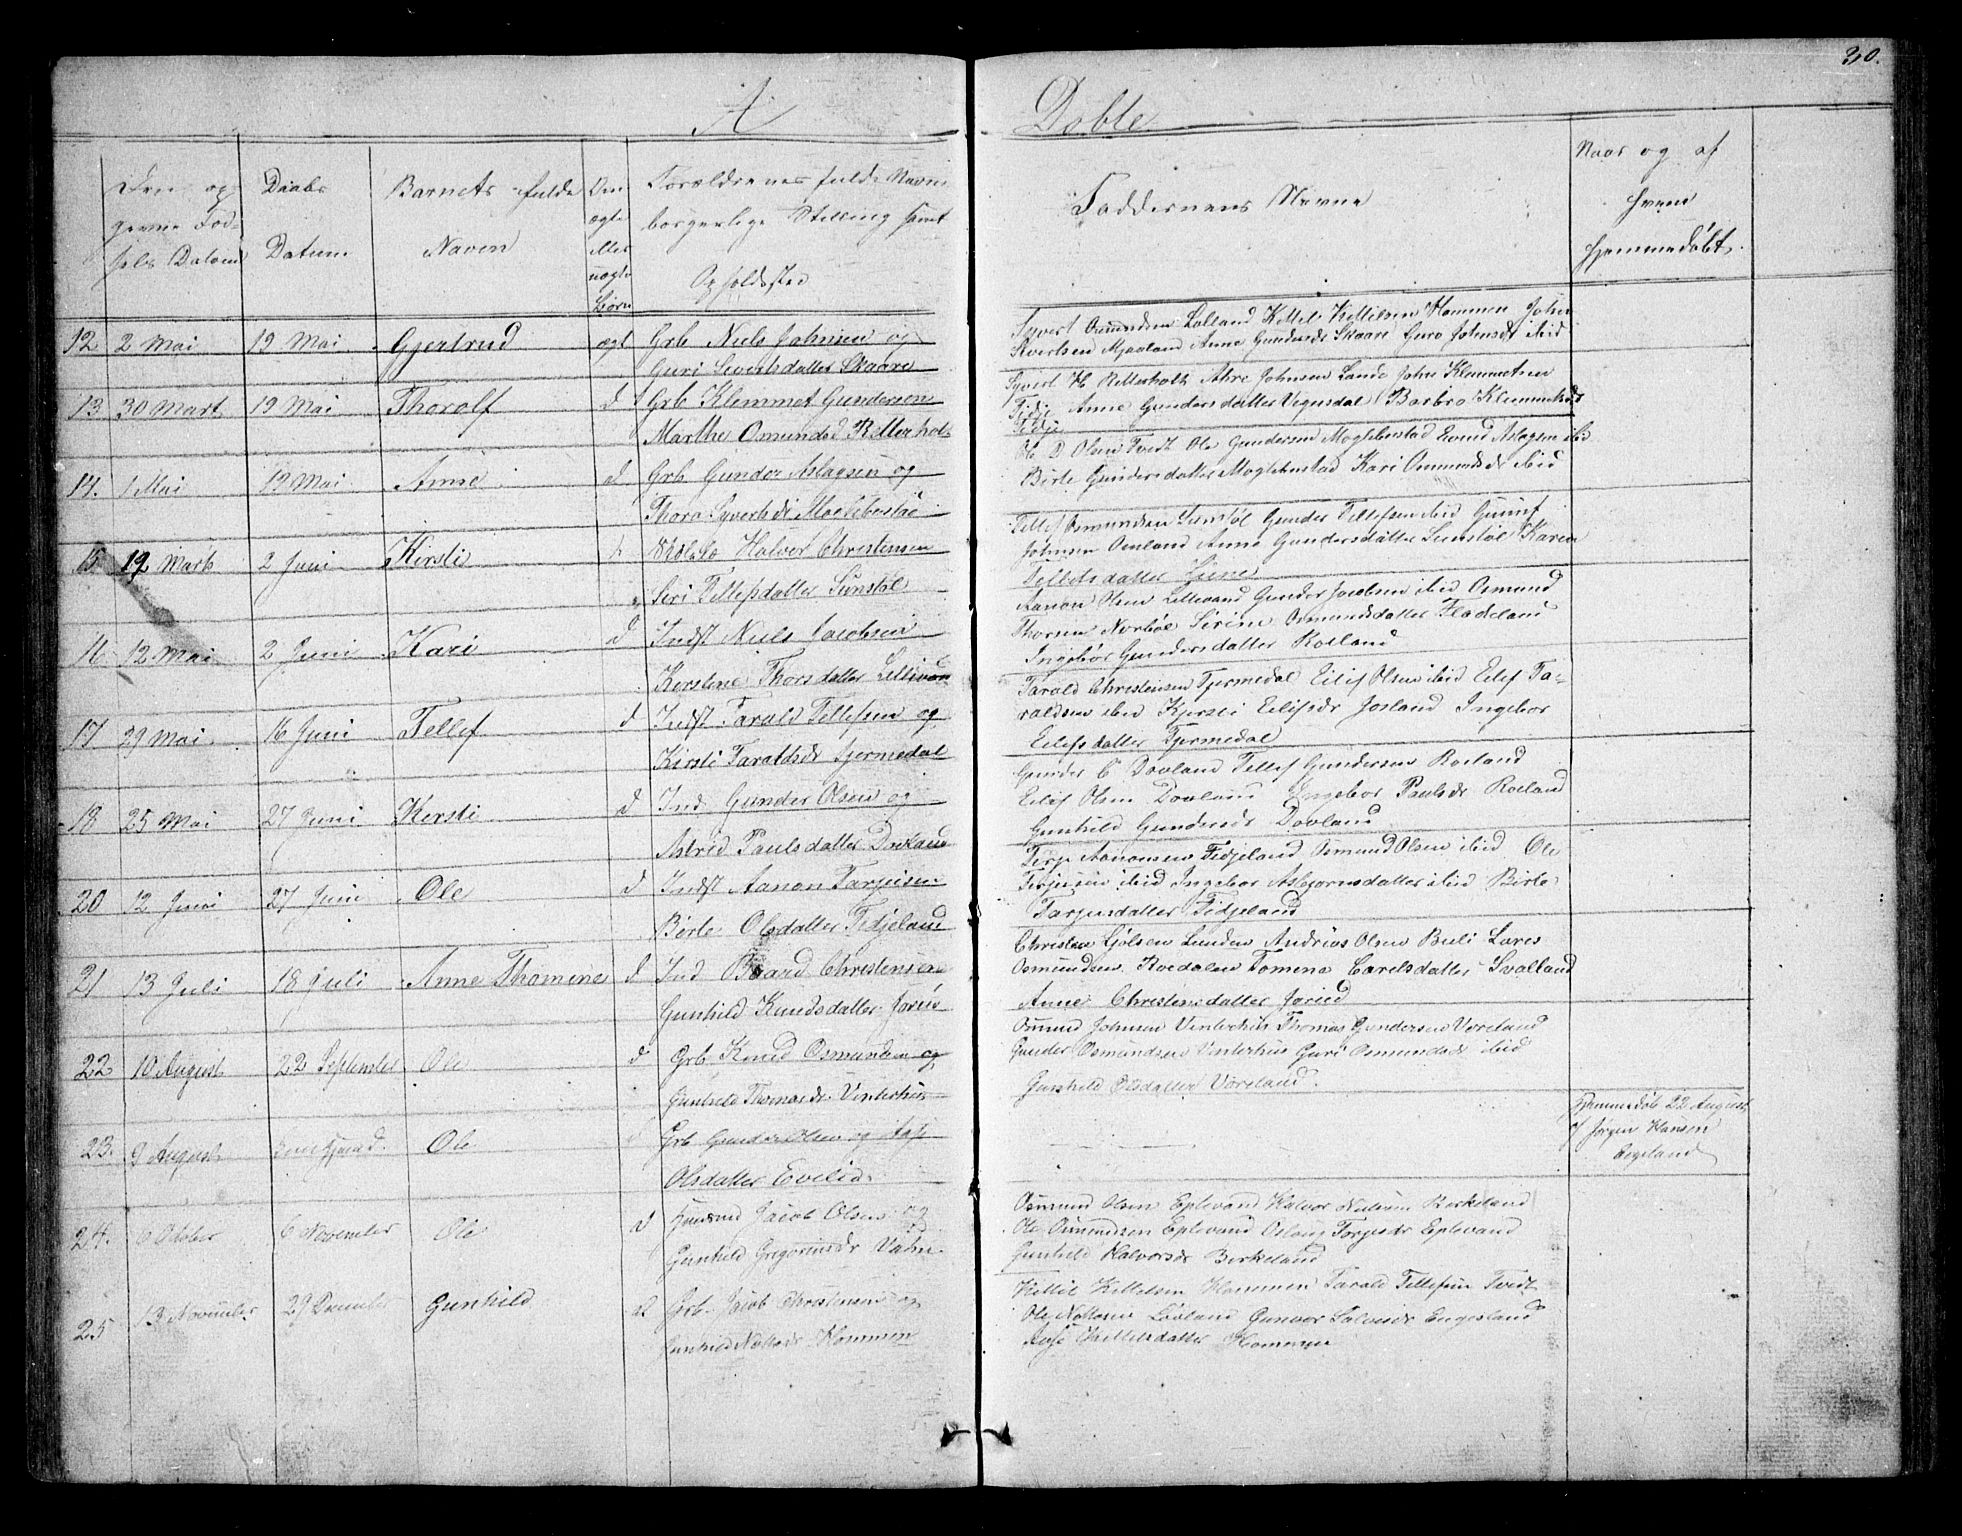 30.
A
Døbte
Den op-
givne Fød-
sels Datum
Daabs
Datum
Barnets fulde
Navn
Om
ægte
eller
uægte
Børn
Forældrenes fulde Navn
borgerlige Stilling samt
Opholdssted
Faddernens Nævne
Naar og af
hvem
hjemmedøbt.
12 2 Mai 19 Mai Gjertrud ægt Grb Niels Johnsen og
Guri Sivertsdatter Skaare
Syvert Osmundsen Lølland Kittel Kittilsen Hommen John
Sivertsen Mjaaland Anne Gundersdr Skaare Guro Johnsdr ibid
13 30 Mart 19 Mai Thorolf d Grb Klemmet Gundersen
Marthe Osmundsd Retterholt
Syvert H. Retterholt Johnsen Lande John Klemmetsen
Anne Gundersdatter Vegusdal Barbro
14. 1 Mai 19 Mai Anne d Grb Gunder Aslagsen og
Thora Syvertsdr Moglebostad
D Olsen Tvedt Ole Gundersen Moglebestad Evind Aslagsen ibid
Birte Gundersdatter Moglebustad Kari Osmundsdr ibid
15 19 Marts 2 Juni Kirsti d Halvor Christensen
Siri Tellefsdatter Sunstøl
Tellef Osmundsen Sunstøl Gunder Tellefsen ibid
Johnsen Omland Anne Gundersdatter Sunstøl Karen
Tellefsdatter
16 12 Mai 2 Juni Kari d Indst Niels Jacobsen
Kerstine Thorsdatter
Aanon Olsen Gunder Jacobsen ibid Osmund
Thorsen Norbøe Sirine Osmundsdatter Fladeland
Ingebør Gundersdatter Røiland
17 29 Mai 16 Juni Tellef d Indst Tarald Tellefsen og
Kirsti Taraldsdr Tjermedal
Tarald Christensen Tjermedal Eilif Olsen ibid Eilef Ta-
raldsen ibid Kjersti Eilifsdr Josland Ingebor
Eilifsdatter Tjermedal
18 25 Mai 27 Juni Kersti d Ind. Gunder Olsen og
Astrid Paulsdatter Dovland
Gunder C Dovland Tellef Gundersen Røiland
Eilif Olsen Dovland Ingebor Paulsdr Røiland
Gunhild Gundersdr Dovland
20 12 Juni 27 Juni Ole d Indst Aanon Tarjeisen
Birte Olsdatter Fidjeland
Terje Aanonsen Fidjeland Osmund Olsen ibid Ole
Terjusen ibid Ingebor Asbjornsdatter ibid Birte
Tarjusdatter Fidjeland
21 13 Juli 18 Juli Anne Thomine d Ind Baard Christensen
Gunhild Knudsdatter
Christen Lunden Andreas Olsen Lars
Osmundsen Tomena Carelsdatter Svalland
Anne Christensdatter
22 10 August 22 September Ole d Grb Knud Osmundsen og
Gunhild Thomasdr Vinterhus
Osmund Johnsen Vinterhus Thomas Gundersen Vøreland
Gunder Osmundsen Vinterhus Guri Osmundsdr ibid
Gunhild Olsdatter Vøreland.
23. 9 August Ole Grb Gunder Olsen og
Olsdatter
Hjemmedøb 22 August
af Jørgen Hansen
24. 6 Otober 6 November Ole d Huusmd Jacob Olsen og
Gunhild Gregoriusdr
Osmund Olsen Eplevand Halvor Nilsen Berkeland
Ole Osmundsen Eplevand Torjusdr Eplevand
Gunhild Halvorsdr Berkeland
25 13 November 29 December Gunhild d Grb Jacob Christensen og
Gunhild Hommen
Kittil Kittelsen Hommen Tarald Tellefsen Tvedt
Ole Løvland Gunvor Salvesdr Engesland
Kittelsdatter Hommen